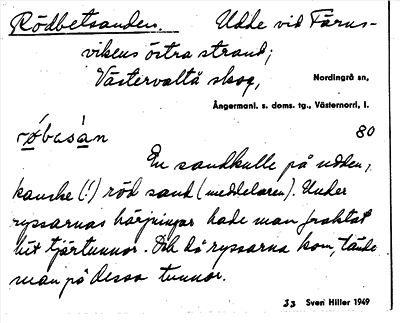 Rödbetsanden. Udde vid Färus-
vikens östra strand;
Västervaltå skog, Nordingrå sn,
Ångermanl. s. doms. tg., Västernorrl. l.
80
En sandkulle på udden,
kanske (!) röd sand (meddelaren). Under
ryssarnas härjningar hade man fraktat
hit tjärtunnor. Och då ryssarna kom, tände
man på dessa tunnor.
33 Sven Hiller 1949